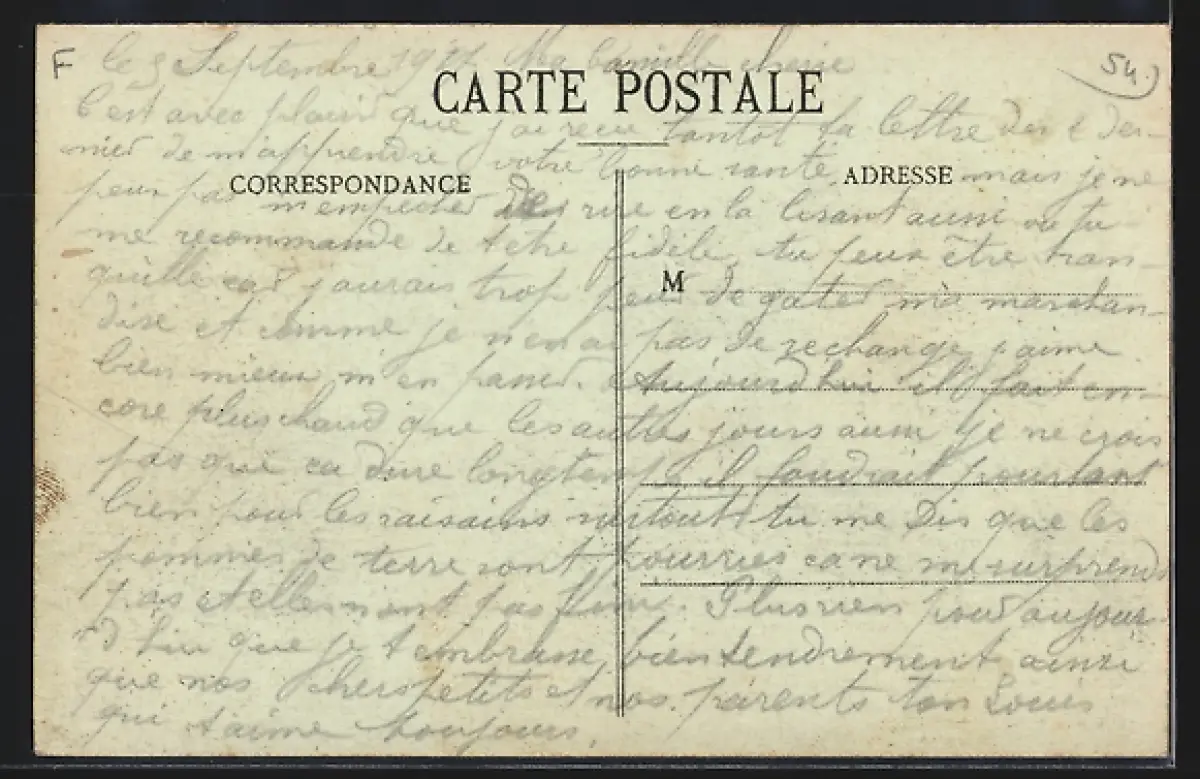 F le 3 Septembre 19 Ma famille cherie 54.)
CARTE POSTALE
C'est avec plaisir que j'ai recu tantot ta lettre du 2 der-
nier de m'apprendre votre bonne sante, mais je ne
CORRESPONDANCE ADRESSE
peux pas m'empecher de rire en la lisant aussi ou tu
me recommande de t'etre fidele, tu peux être tran-
M
quille car j'aurais trop peur de gater ma marchan-
dise et comme je n'en ai pas de rechange j'aime
bien mieux m'en passer. Aujourd'hui il fait en-
core plus chaud que les autres jours aussi je ne crois
pas que ca dure longtemps il faudrait pourtant
bien pour les raisains surtout tu me dis que les
pommes de terre sont pourries ca ne me surprend
pas et elles n'ont pas fini. Plus rien pour aujour-
d'hui que je t'embrasse bien tendrement ainsi
que nos chers petits et nos parents ton Louis
qui t'aime toujours.